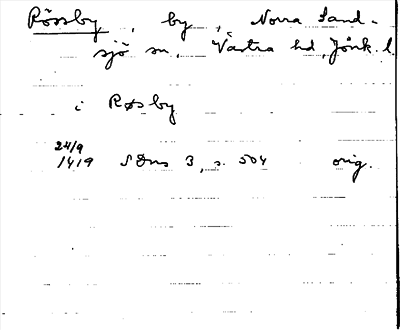 Rössby, by, Norra Sand-
sjö sn, Västra hd, Jönk. l.
i Røsby
24/9
1419 SDns 3, s. 504 orig.